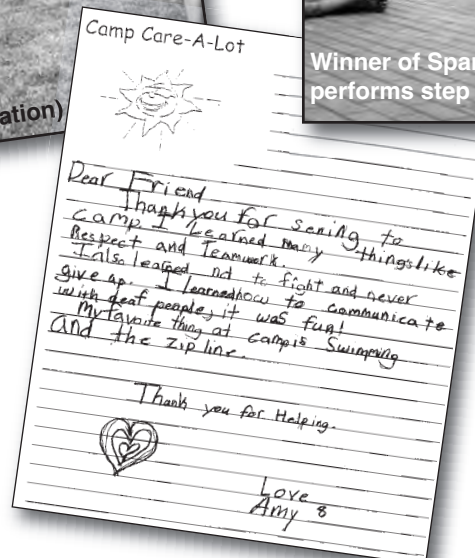 ation)
Winner of Spar
performs step
Camp Care-A-Lot
Dear Friend
Thank you for sening to
camp I Learned many things like
Respect and Teamwork.
I also learned not to fight and never
give up. I learned how to communicate
with deaf people, it was fun!
My favorite thing at camp is Swimming
and the zip line.
Thank you for Helping.
Love
Amy 8